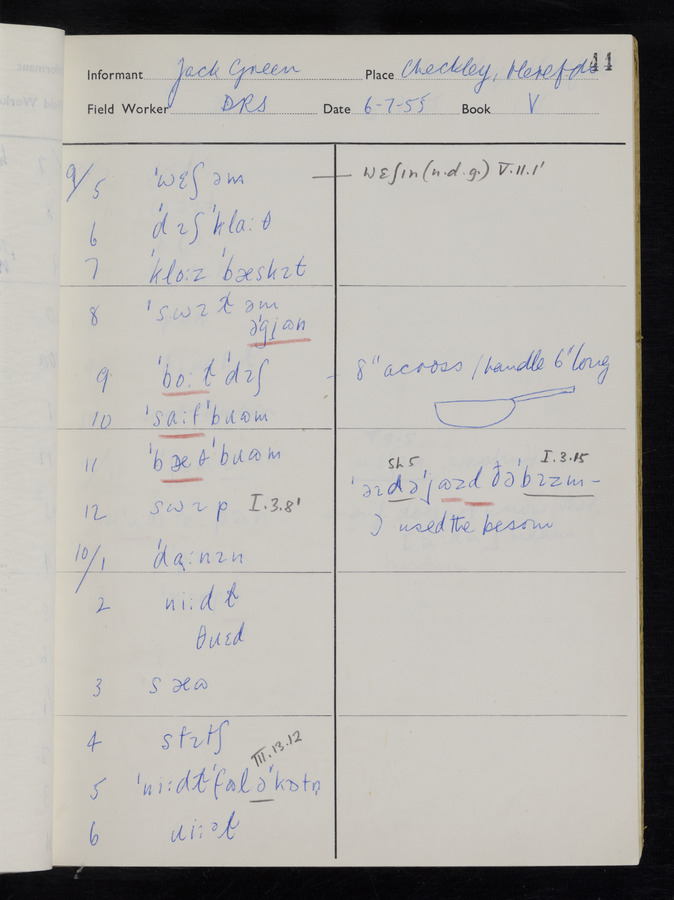 11
Informant Jack Green Place Checkley, Herefds
Field Worker DRS Date 6-7-55 Book V
9/5 ˈwɛʃ əm — wɛʃɪn (n.d.g.) V.11.1'
6 ˈdɪʃ ˈklaːθ
7 ˈkloːz ˈbæskɪt
8 ˈswɪt əm
əˈgjɒn
9 ˈboːt ˈdɪʃ - 8" across / handle 6" long
10 ˈsaːf ˈbɹɒm
11 ˈbæθ ˈbɹɒm
Sh 5 I.3.15
ˈəɪdəˈjɒzd ðəˈbɪzm -
I used the besom
12 swɪp I.3.8'
10/1 ˈdaːnɪn
2 niːdt
θɹɛd
3 sæɒ
4 stɪtʃ
III.13.12
5 ˈniːdt ˈfɒl əˈkɒtn
6 ɹiːət